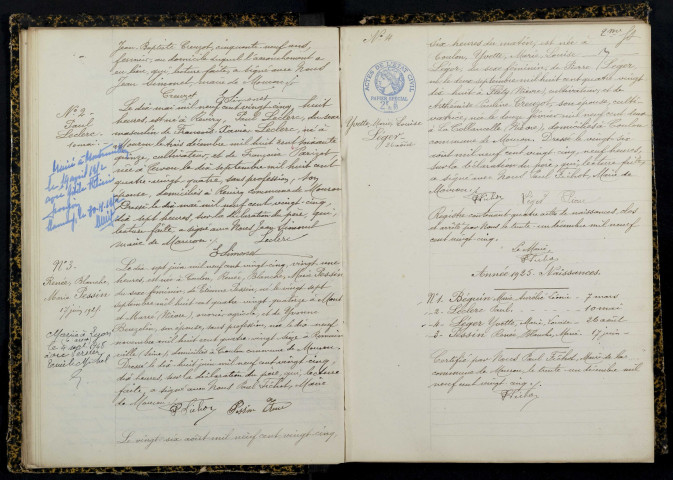 Jean Baptiste Creuzot, cinquante neuf ans,
fermier, au domicile duquel l'accouchement a
eu lieu, qui, lecture faite, a signé avec Nous
Jean Simonet, maire de Mouron
Creuzot
N° 2
Paul
Leclerc
10 mai
Marié à
le 19 avril 1952
avec
Le dix mai mil neuf cent vingt cinq, huit
heures, est né à Paul Leclerc, du sexe
masculin de François Leclerc, né à
Mouron le trois décembre mil huit cent quatre vingt
quinze, cultivateur, et de Françoise
née à le septembre mil huit cent
quatre-vingt-quinze, sans profession, son
épouse, domiciliés à commune de Mouron
Dressé le dix mai mil neuf cent vingt cinq,
dix sept heures, sur la déclaration du père, qui,
lecture faite, a signé avec Nous Jean Simonet
maire de Mouron. Leclerc
N° 3.
Renée, Blanche,
Marie Pessin
17 juin 1925
Mariée à
le 1948
avec
Michel
Le dix sept juin mil neuf cent vingt cinq, vingt-une
heures, est née à Coulon, Renée, Blanche, Marie Pessin
du sexe féminin, de Etienne Pessin, né le vingt sept
septembre mil huit cent quatre vingt quatorze à Mont
et Marré, Nièvre, ouvrier agricole, et de Yvonne
son épouse, sans profession, née le dix neuf
novembre mil huit cent quatre vingt dix
domiciliés à Coulon commune de Mouron.
Dressé le dix huit juin mil neuf cent vingt cinq,
dix heures, sur la déclaration du père, qui, lecture
faite, a signé avec Nous Paul Fichot, Maire
de Mouron.
P. Fichot Pessin
Le vingt six août mil neuf cent vingt cinq,
N° 4
ACTES DE L'ÉTAT CIVIL
PAPIER SPÉCIAL
Yvette Marie Louise
Léger
26 août
six heures du matin, est née à
Coulon Yvette, Marie, Louise
Léger, du sexe féminin, de Pierre Léger,
né le deux septembre mil huit cent quatre vingt
dix huit à (Nièvre), cultivateur, et de
Pauline Creuzot, son épouse, culti-
vatrice, née le douze février mil neuf cent deux
à La Collancelle (Nièvre), domiciliés à Coulon
commune de Mouron. Dressé le vingt six
août mil neuf cent vingt cinq, neuf heures,
sur la déclaration du père, qui, lecture faite,
a signé avec Nous Paul Fichot, Maire de
Mouron.
P. Fichot Léger
Registre contenant quatre actes de naissances clos
et arrêté par Nous le trente un décembre mil neuf
cent vingt cinq.
Le Maire
P. Fichot
Année 1925. Naissances.
N° 1. Béguin Marie 7 mars
- 2 - Leclerc Paul 10 mai
- 4 - Léger Yvette, Marie, Louise - 26 août
- 3 - Pessin Renée, Blanche, Marie - 17 juin -
Certifié par Nous Paul Fichot, Maire de la
commune de Mouron, le trente un décembre mil
neuf cent vingt cinq.
P. Fichot